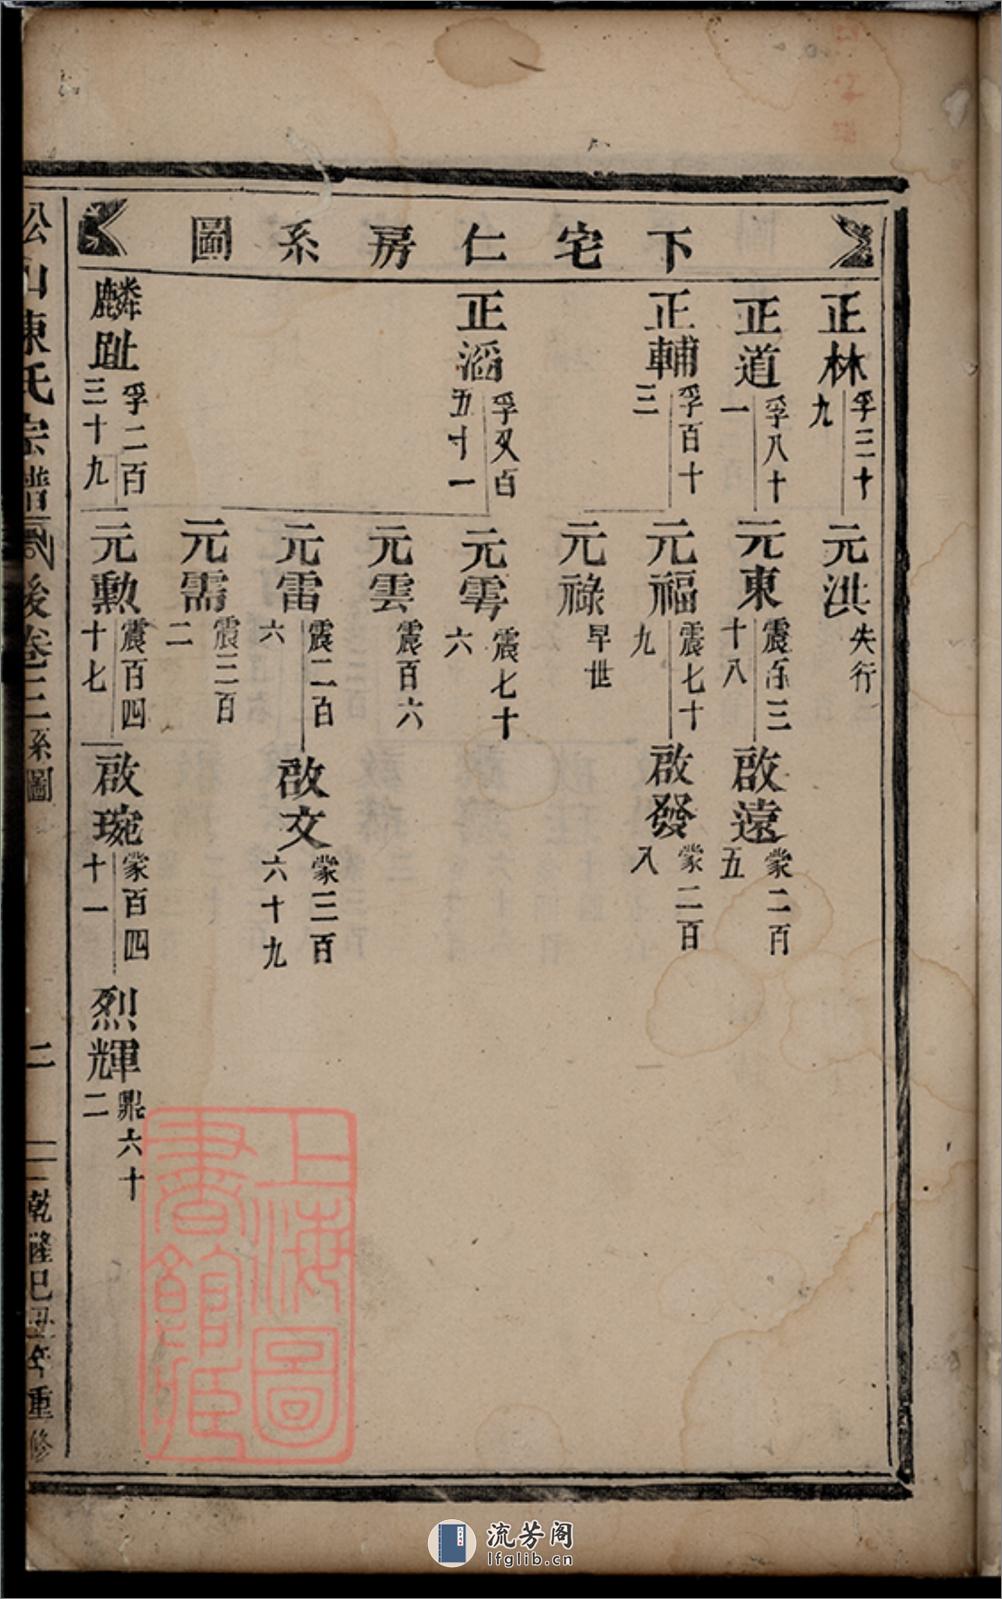 下宅仁房系圖
正林 孚三十九
正道 孚八十一
正輔 孚百十三
正滔 孚又百五十一
麟趾 孚二百三十九
元洪 失行
元東 震百三十八
元福 震七十九
元祿 早世
元雩 震七十六
元雲 震百六
元雷 震二百六
元需 震三百二
元勲 震百四十七
啟遠 蒙二百五
啟發 蒙二百八
啟文 蒙三百六十九
啟琬 蒙百四十一
烈輝 鼎六十二
松山陳氏宗譜 後卷三系圖
二
乾隆己丑年重修
上海圖書館藏
流芳阁
lfglib.cn